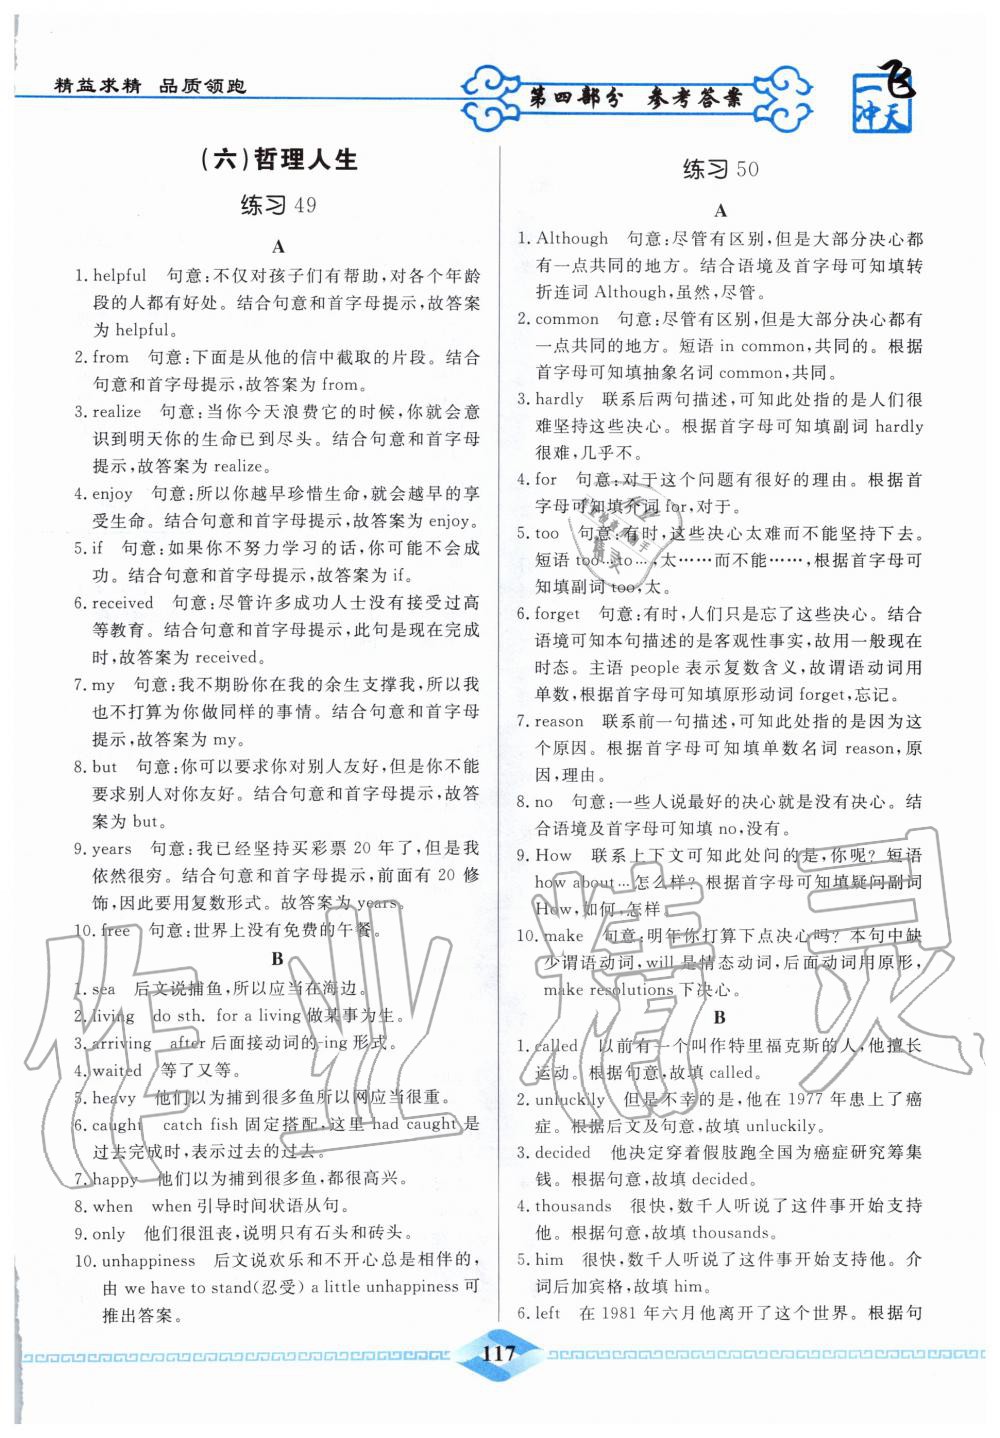 精益求精 品质领跑
第四部分 参考答案
一飞冲天
(六)哲理人生
练习 49
A
1. helpful 句意:不仅对孩子们有帮助,对各个年龄
段的人都有好处。结合句意和首字母提示,故答案
为 helpful。
2. from 句意:下面是从他的信中截取的片段。结合
句意和首字母提示,故答案为 from。
3. realize 句意:当你今天浪费它的时候,你就会意
识到明天你的生命已到尽头。结合句意和首字母
提示,故答案为 realize。
4. enjoy 句意:所以你越早珍惜生命,就会越早的享
受生命。结合句意和首字母提示,故答案为 enjoy。
5. if 句意:如果你不努力学习的话,你可能不会成
功。结合句意和首字母提示,故答案为 if。
6. received 句意:尽管许多成功人士没有接受过高
等教育。结合句意和首字母提示,此句是现在完成
时,故答案为 received。
7. my 句意:我不期盼你在我的余生支撑我,所以我
也不打算为你做同样的事情。结合句意和首字母
提示,故答案为 my。
8. but 句意:你可以要求你对别人友好,但是你不能
要求别人对你友好。结合句意和首字母提示,故答
案为 but。
9. years 句意:我已经坚持买彩票 20 年了,但是我
依然很穷。结合句意和首字母提示,前面有 20 修
饰,因此要用复数形式。故答案为 years。
10. free 句意:世界上没有免费的午餐。
B
1. sea 后文说捕鱼,所以应当在海边。
2. living do sth. for a living 做某事为生。
3. arriving after 后面接动词的-ing 形式。
4. waited 等了又等。
5. heavy 他们以为捕到很多鱼所以网应当很重。
6. caught catch fish 固定搭配,这里 had caught 是
过去完成时,表示过去的过去。
7. happy 他们以为捕到很多鱼,都很高兴。
8. when when 引导时间状语从句。
9. only 他们很沮丧,说明只有石头和砖头。
10. unhappiness 后文说欢乐和不开心总是相伴的,
由 we have to stand(忍受) a little unhappiness 可
推出答案。
练习 50
A
1. Although 句意:尽管有区别,但是大部分决心都
有一点共同的地方。结合语境及首字母可知填转
折连词 Although,虽然,尽管。
2. common 句意:尽管有区别,但是大部分决心都有
一点共同的地方。短语 in common,共同的。根据
首字母可知填抽象名词 common,共同。
3. hardly 联系后两句描述,可知此处指的是人们很
难坚持这些决心。根据首字母可知填副词 hardly
很难,几乎不。
4. for 句意:对于这个问题有很好的理由。根据首
字母可知填介词 for,对于。
5. too 句意:有时,这些决心太难而不能坚持下去。
短语 too…to…,太……而不能……,根据首字母可
知填副词 too,太。
6. forget 句意:有时,人们只是忘了这些决心。结合
语境可知本句描述的是客观性事实,故用一般现在
时态。主语 people 表示复数含义,故谓语动词用
单数,根据首字母可知填原形动词 forget,忘记。
7. reason 联系前一句描述,可知此处指的是因为这
个原因。根据首字母可知填单数名词 reason,原
因,理由。
8. no 句意:一些人说最好的决心就是没有决心。结
合语境及首字母可知填 no,没有。
9. How 联系上下文可知此处问的是,你呢? 短语
how about…怎么样? 根据首字母可知填疑问副词
How,如何,怎样。
10. make 句意:明年你打算下点决心吗? 本句中缺
少谓语动词,will 是情态动词,后面动词用原形,
make resolutions 下决心。
B
1. called 以前有一个叫作特里福克斯的人,他擅长
运动。根据句意,故填 called。
2. unluckily 但是不幸的是,他在 1977 年患上了癌
症。根据后文及句意,故填 unluckily。
3. decided 他决定穿着假肢跑全国为癌症研究筹集
钱。根据句意,故填 decided。
4. thousands 很快,数千人听说了这件事开始支持
他。根据句意,故填 thousands。
5. him 很快,数千人听说了这件事开始支持他。介
词后加宾格,故填 him。
6. left 在 1981 年六月他离开了这个世界。根据句
117
作业精灵